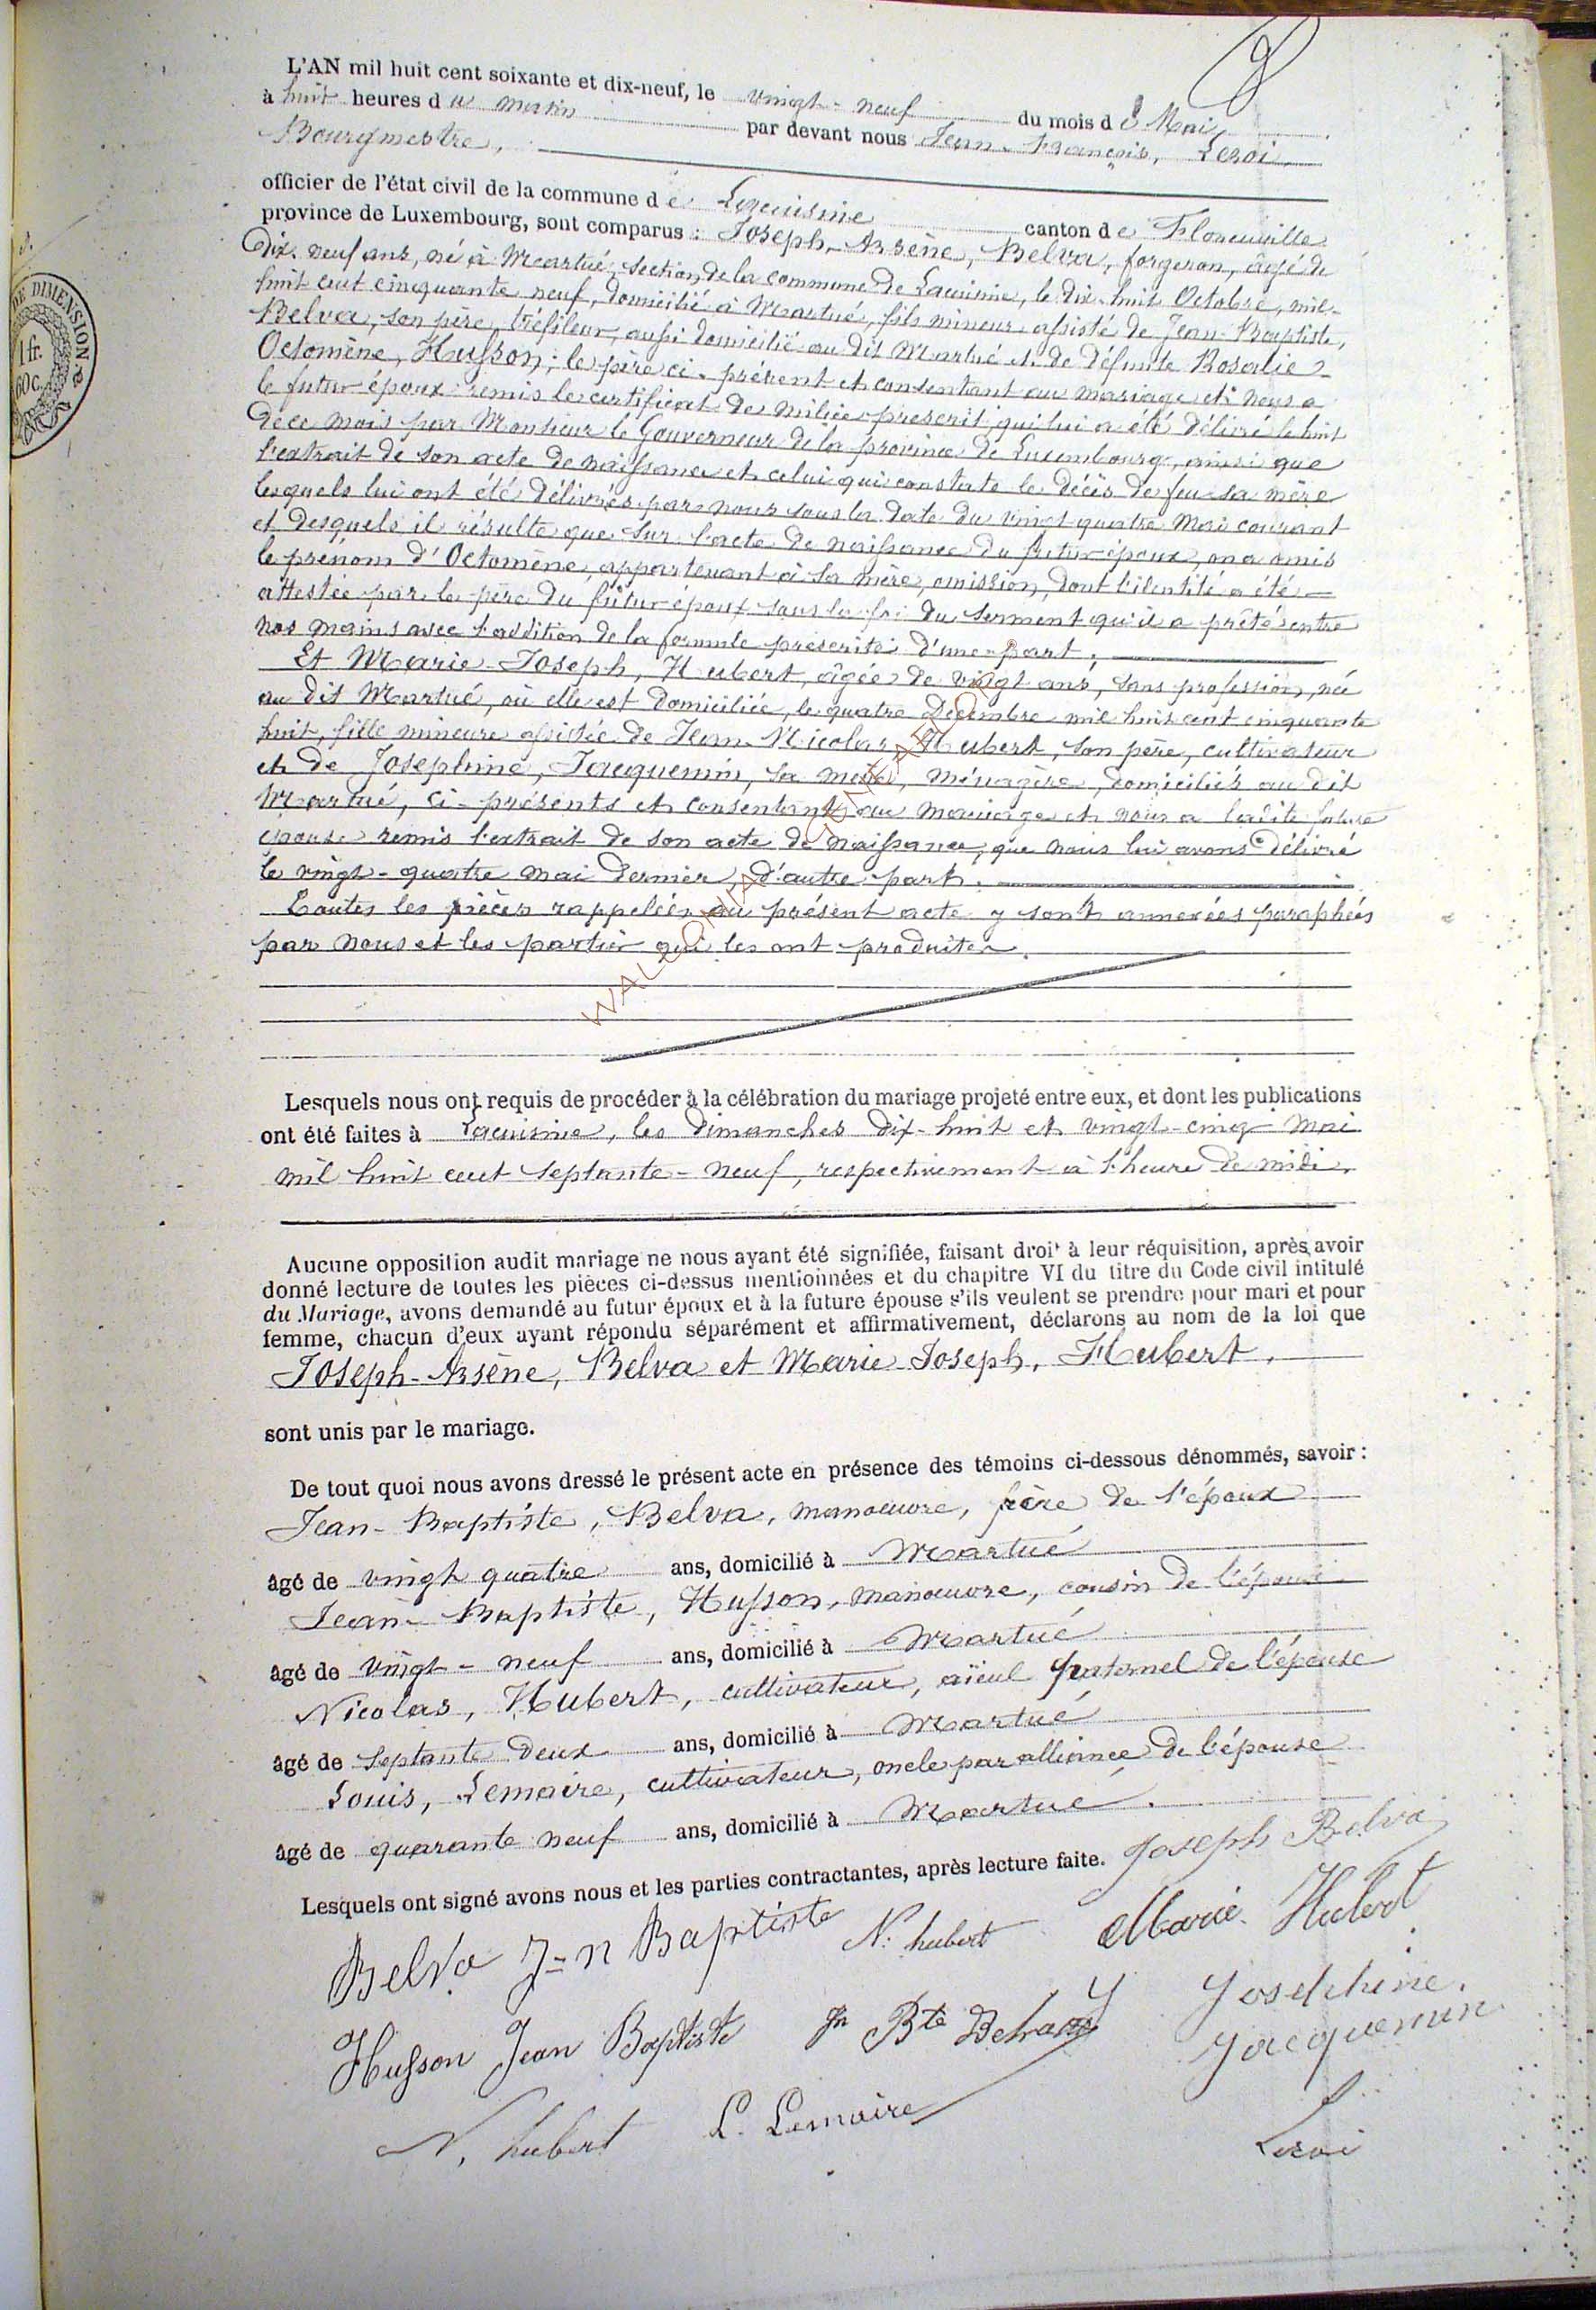 L'AN mil huit cent soixante et dix-neuf, le vingt-neuf du mois de Mai,
à huit heures du matin par devant nous Jean-François, Leroi
Bourgmestre,
officier de l'état civil de la commune de Lacuisine canton de Florenville
province de Luxembourg, sont comparus : Joseph-Arsène, Belva, forgeron, âgé de
Dix-neuf ans, né à Martué, section de la commune de Lacuisine, le dix-huit Octobre, mil-
huit cent cinquante neuf, domicilié à Martué, fils mineur assisté de Jean-Baptiste,
Belva, son père, tréfileur, aussi domicilié au dit Martué et de défunte Rosalie-
Octomène, Husson; le père ci-présent et consentant au mariage et nous a
le futur époux remis le certificat de milice prescrit qui lui a été délivré le huit
de ce mois par Monsieur le Gouverneur de la province de Luxembourg, ainsi que
l'extrait de son acte de naissance et celui qui constate le décès de feu sa mère
lesquels lui ont été délivrés par nous sous la date du vingt quatre Mai courant
et desquels il résulte que sur l'acte de naissance du futur époux, on a omis
le prénom d'Octomène, appartenant à sa mère, omission, dont l'identité a été
attestée par le père du futur époux sous la foi du serment qu'il a prêté entre
nos mains avec l'addition de la formule prescrite d'une part;
Et Marie-Joseph, Hubert, âgée de vingt ans, sans profession, née
au dit Martué, où elle est domiciliée, le quatre Décembre mil huit cent cinquante
huit, fille mineure assistée de Jean-Nicolas, Hubert, son père, cultivateur
et de Joséphine, Jacquemin, sa mère, ménagère, domiciliés au dit
Martué, ci-présents et consentant au mariage et nous a ladite future
épouse remis l'extrait de son acte de naissance, que nous lui avons délivré
le vingt-quatre mai dernier, d'autre part.
Toutes les pièces rappelées au présent acte y sont annexées paraphées
par nous et les parties qui les ont produites.
Lesquels nous ont requis de procéder à la célébration du mariage projeté entre eux, et dont les publications
ont été faites à Lacuisine, les dimanches dix-huit et vingt-cinq Mai
mil huit cent septante-neuf, respectivement à l'heure de midi.
Aucune opposition audit mariage ne nous ayant été signifiée, faisant droit à leur réquisition, après avoir
donné lecture de toutes les pièces ci-dessus mentionnées et du chapitre VI du titre du Code civil intitulé
du Mariage, avons demandé au futur époux et à la future épouse s'ils veulent se prendre pour mari et pour
femme, chacun d'eux ayant répondu séparément et affirmativement, déclarons au nom de la loi que
Joseph-Arsène, Belva et Marie-Joseph, Hubert,
sont unis par le mariage.
De tout quoi nous avons dressé le présent acte en présence des témoins ci-dessous dénommés, savoir :
Jean-Baptiste, Belva, manoeuvre, frère de l'époux
âgé de vingt quatre ans, domicilié à Martué
Jean-Baptiste, Husson, manoeuvre, cousin de l'épouse
âgé de vingt-neuf ans, domicilié à Martué
Nicolas, Hubert, cultivateur, aïeul paternel de l'épouse
âgé de septante deux ans, domicilié à Martué
Louis, Lemaire, cultivateur, oncle par alliance de l'épouse
âgé de quarante neuf ans, domicilié à Martué.
Lesquels ont signé avons nous et les parties contractantes, après lecture faite. Joseph Belva
Belva J-n Baptiste N. hubert Marie Hubert
Husson Jean Baptiste Jn Bte Joséphine.
Jacquemin
N. hubert L. Lemaire Leroi
DE DIMENSION
1 fr.
60 c.
WALLONIA